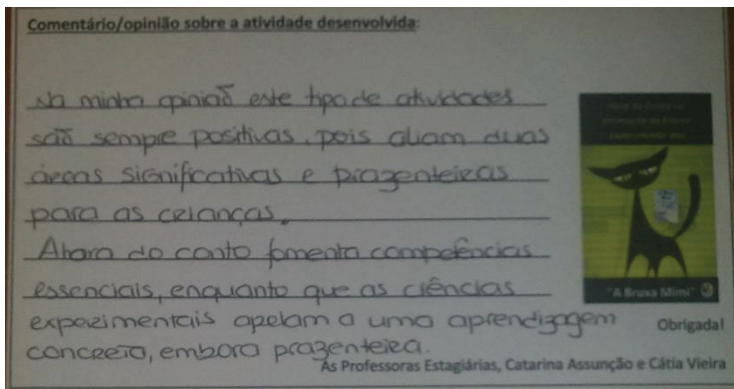 Comentário/opinião sobre a atividade desenvolvida:
Na minha opinião este tipo de atividades
são sempre positivas, pois aliam duas
áreas significativas e prazenteiras
para as crianças.
A hora do conto fomenta competências
essenciais, enquanto que as ciências
experimentais apelam a uma aprendizagem
concreta, embora prazenteira.
"A Bruxa Mimi"
Obrigada!
As Professoras Estagiárias, Catarina Assunção e Cátia Vieira